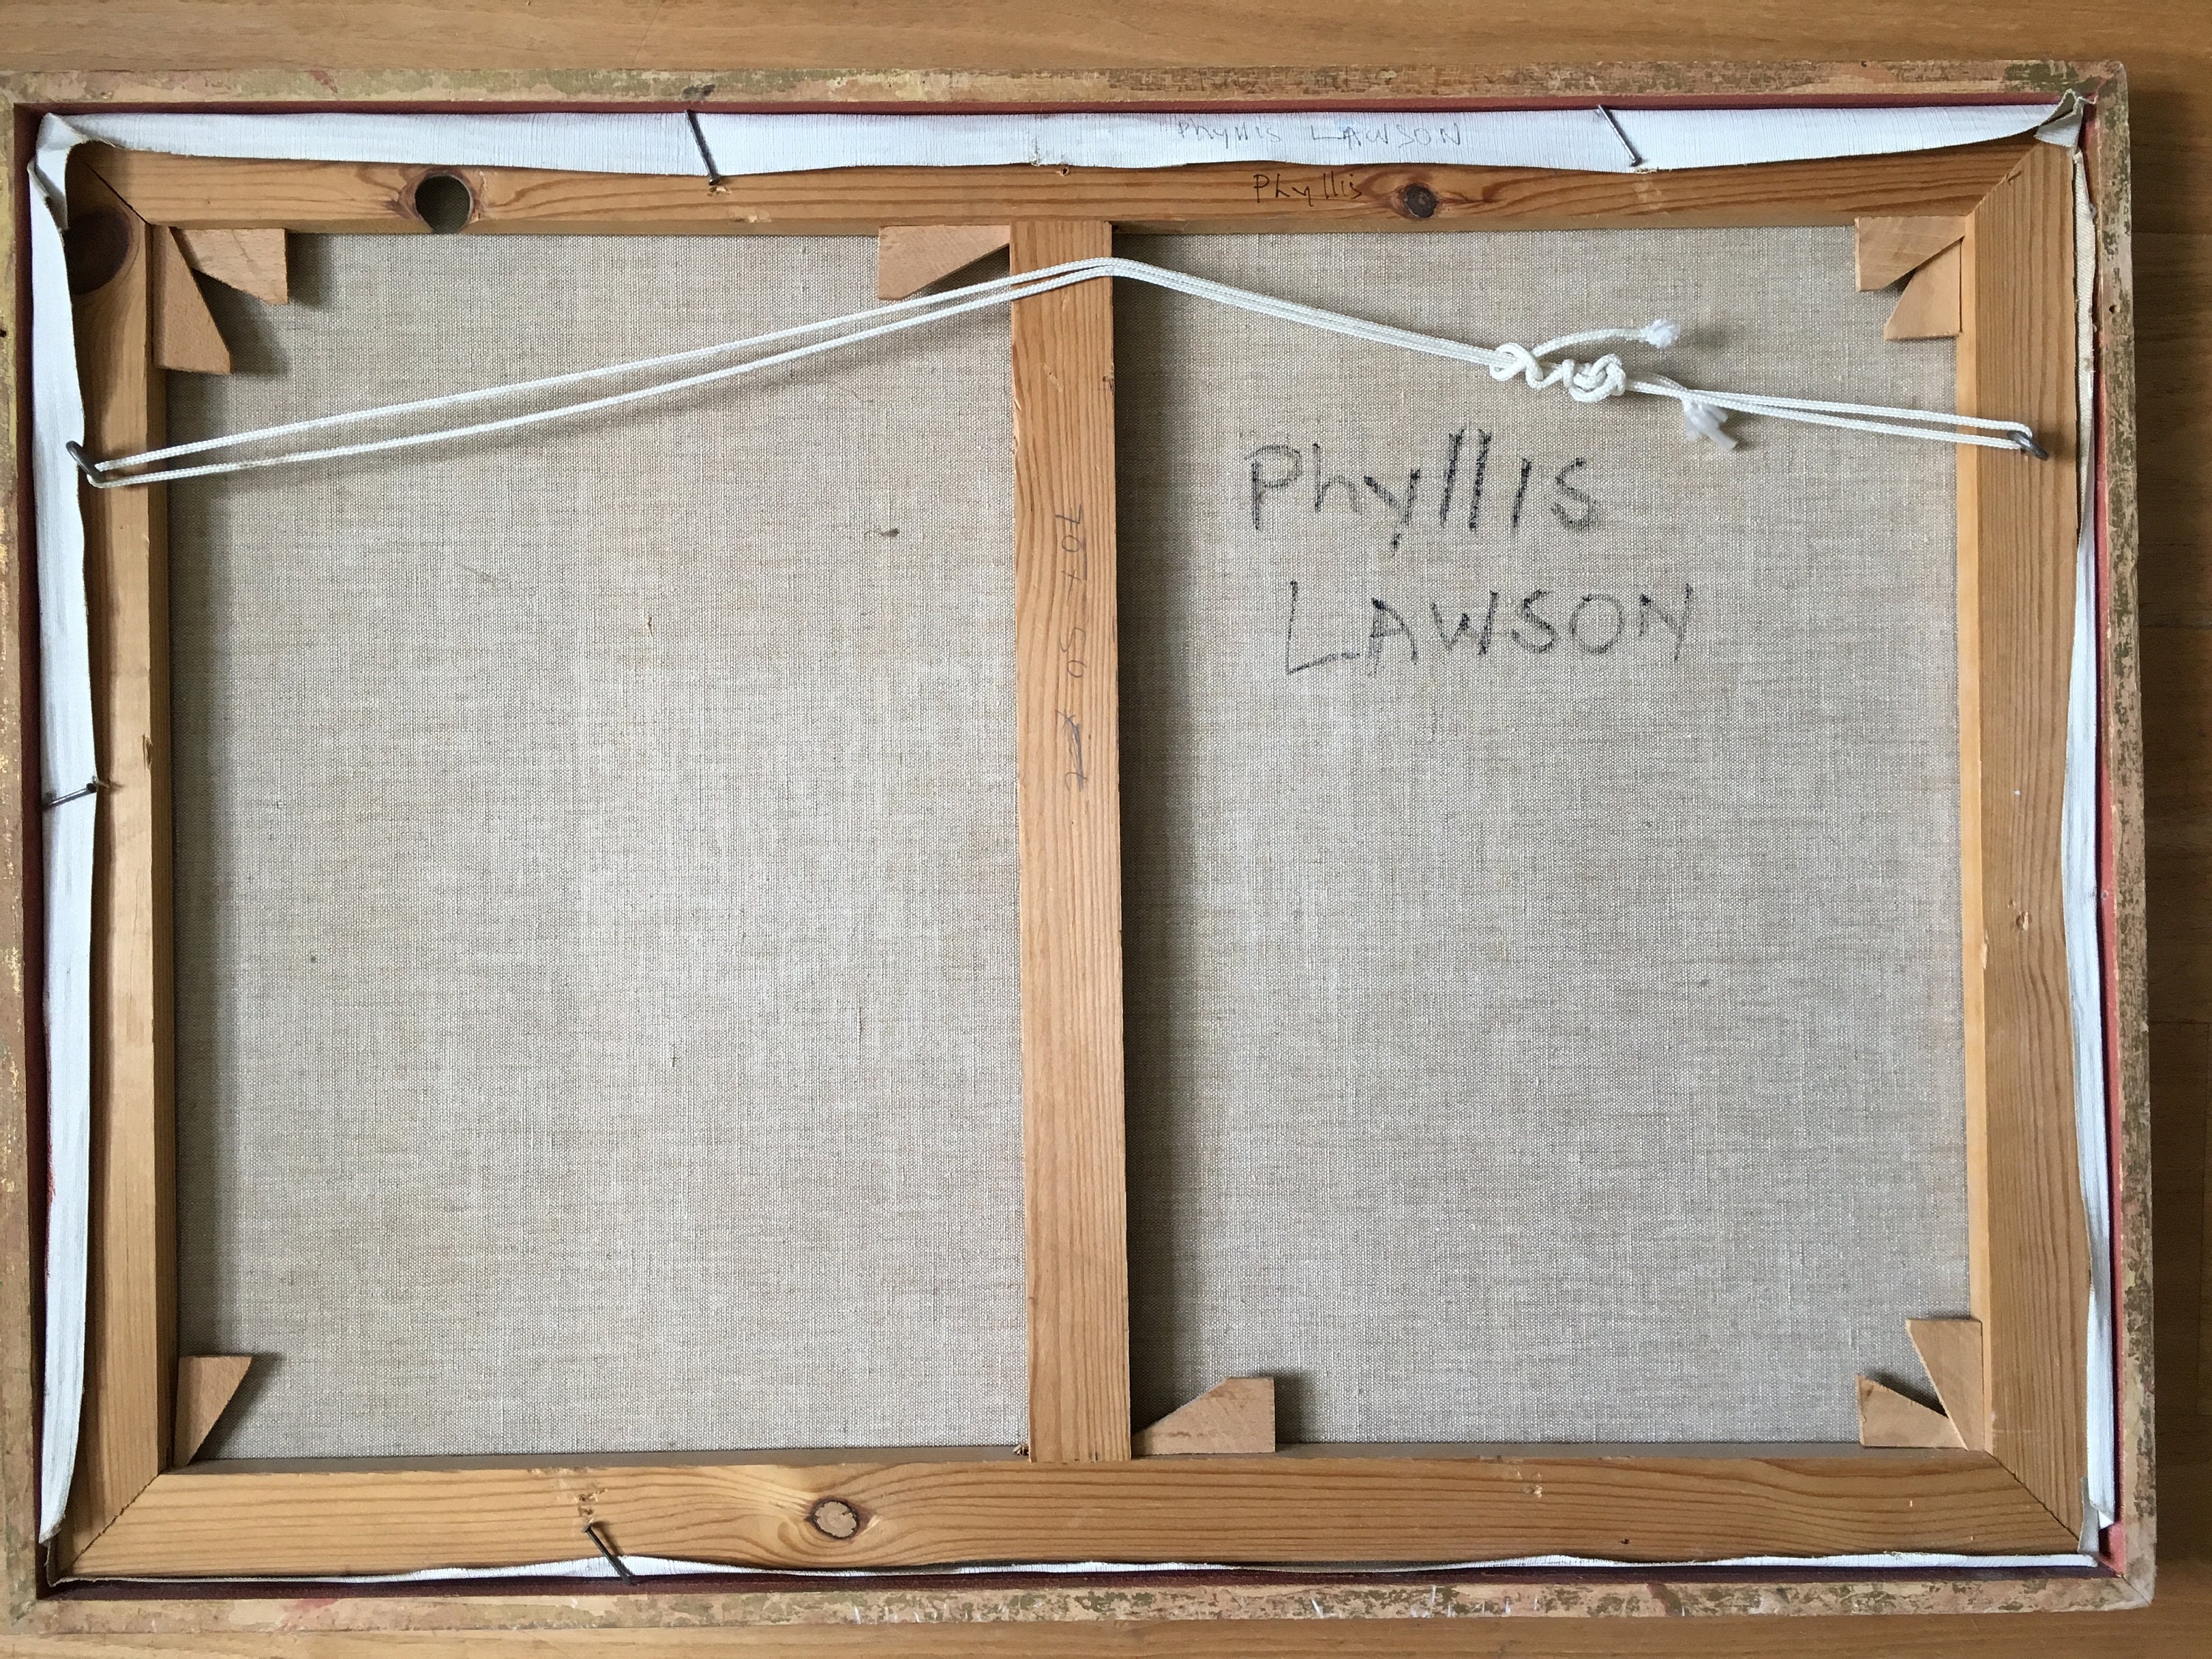 Phyllis LAWSON
Phyllis
Phyllis
LAWSON